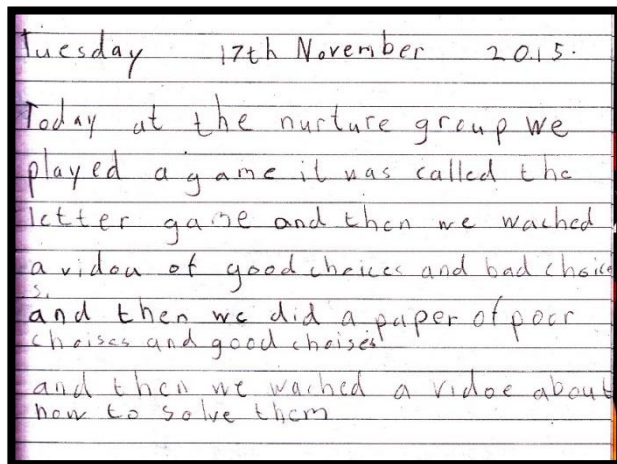 Tuesday 17th November 2015.
Today at the nurture group we
played a game it was called the
letter game and then we wached
a vidou of good choices and bad choice
s.
and then we did a paper of poor
choises and good choises
and then we wached a vidoe about
how to solve them